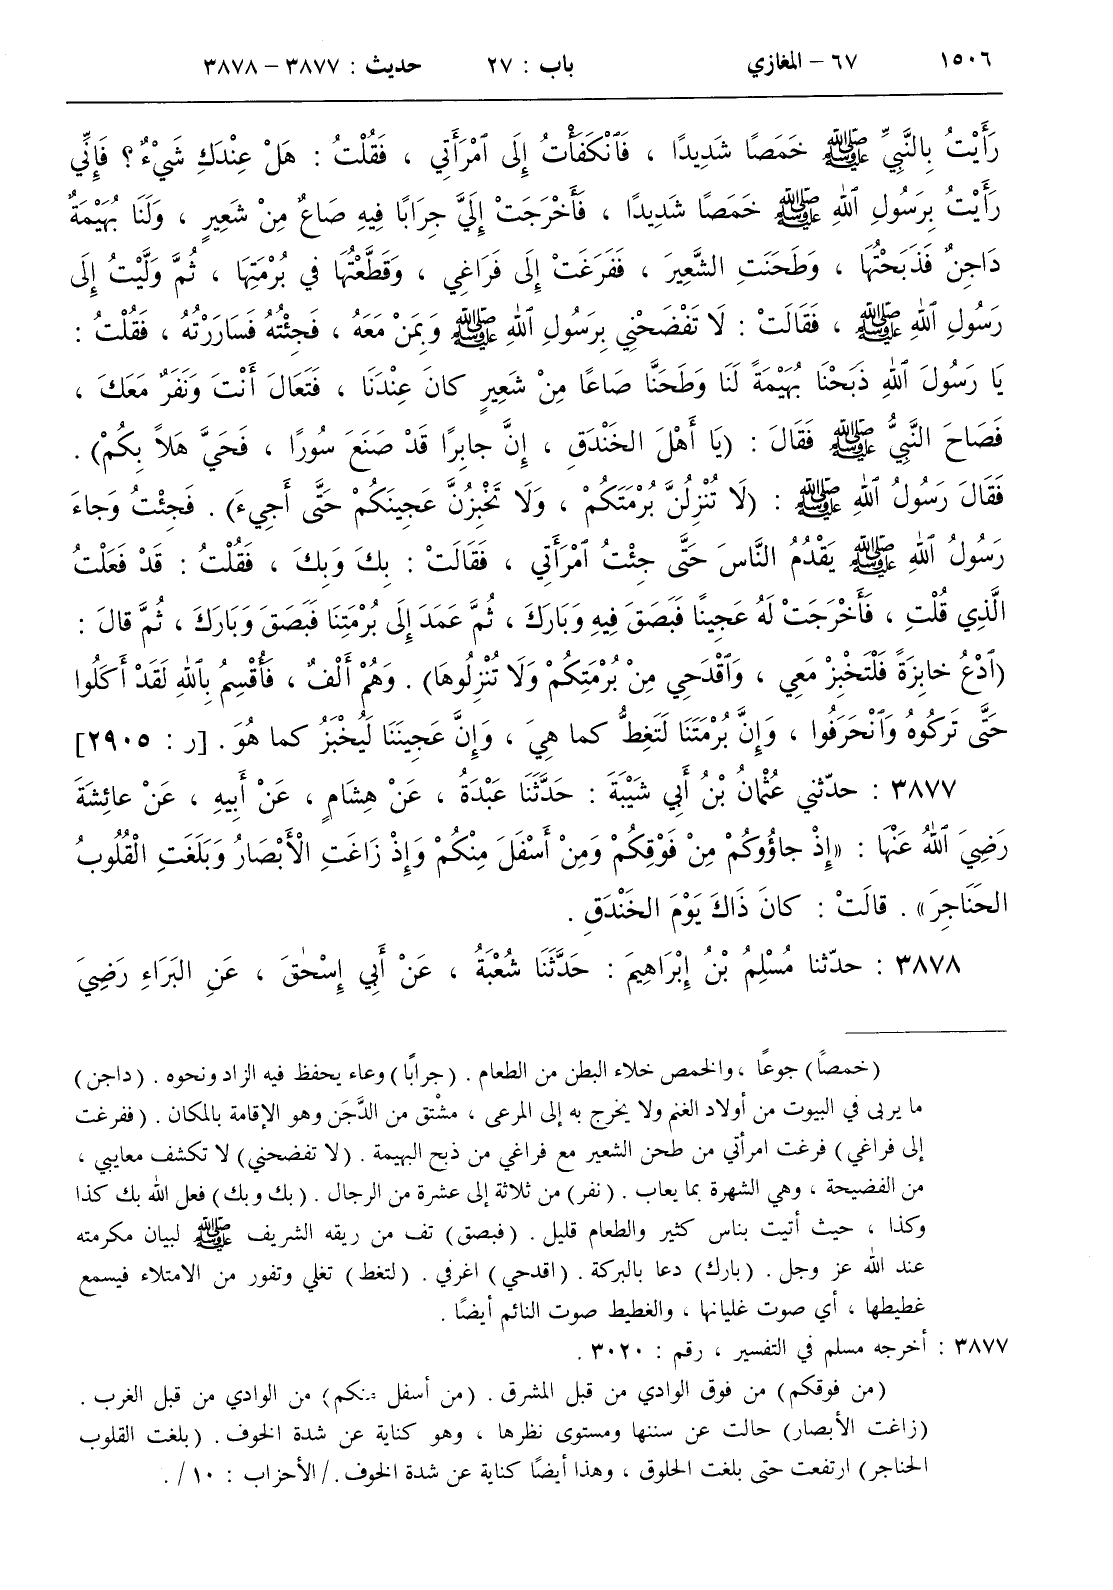 ١٥٠٦ ٦٧ – المغازي باب : ٢٧ حديث : ٣٨٧٧ – ٣٨٧٨
رَأَيْتُ بِالنَّبِيِّ ﷺ خَمَصًا شَدِيدًا ، فَٱنْكَفَأْتُ إِلَى ٱمْرَأَتِي ، فَقُلْتُ : هَلْ عِنْدَكِ شَيْءٌ ؟ فَإِنِّي
رَأَيْتُ بِرَسُولِ ٱللهِ ﷺ خَمَصًا شَدِيدًا ، فَأَخْرَجَتْ إِلَيَّ جِرَابًا فِيهِ صَاعٌ مِنْ شَعِيرٍ ، وَلَنَا بُهَيْمَةٌ
دَاجِنٌ فَذَبَحْتُهَا ، وَطَحَنَتِ الشَّعِيرَ ، فَفَرَغَتْ إِلَى فَرَاغِي ، وَقَطَّعْتُهَا فِي بُرْمَتِهَا ، ثُمَّ وَلَّيْتُ إِلَى
رَسُولِ ٱللهِ ﷺ ، فَقَالَتْ : لَا تَفْضَحْنِي بِرَسُولِ ٱللهِ ﷺ وَبِمَنْ مَعَهُ ، فَجِئْتُهُ فَسَارَرْتُهُ ، فَقُلْتُ :
يَا رَسُولَ ٱللهِ ذَبَحْنَا بُهَيْمَةً لَنَا وَطَحَنَّا صَاعًا مِنْ شَعِيرٍ كانَ عِنْدَنَا ، فَتَعَالَ أَنْتَ وَنَفَرٌ مَعَكَ ،
فَصَاحَ النَّبِيُّ ﷺ فَقَالَ : (يَا أَهْلَ الخَنْدَقِ ، إِنَّ جابِرًا قَدْ صَنَعَ سُورًا ، فَحَيَّ هَلاً بِكُمْ) .
فَقَالَ رَسُولُ ٱللهِ ﷺ : (لَا تُنْزِلُنَّ بُرْمَتَكُمْ ، وَلَا تَخْبِزُنَّ عَجِينَكُمْ حَتَّى أَجِيءَ) . فَجِئْتُ وَجاءَ
رَسُولُ ٱللهِ ﷺ يَقْدُمُ النَّاسَ حَتَّى جِئْتُ ٱمْرَأَتِي ، فَقَالَتْ : بِكَ وَبِكَ ، فَقُلْتُ : قَدْ فَعَلْتُ
الَّذِي قُلْتِ ، فَأَخْرَجَتْ لَهُ عَجِينًا فَبَصَقَ فِيهِ وَبَارَكَ ، ثُمَّ عَمَدَ إِلَى بُرْمَتِنَا فَبَصَقَ وَبَارَكَ ، ثُمَّ قالَ :
(ٱدْعُ خابِزَةً فَلْتَخْبِزْ مَعِي ، وَٱقْدَحِي مِنْ بُرْمَتِكُمْ وَلَا تُنْزِلُوهَا) . وَهُمْ أَلْفٌ ، فَأُقْسِمُ بِٱللهِ لَقَدْ أَكَلُوا
حَتَّى تَرَكُوهُ وَٱنْحَرَفُوا ، وَإِنَّ بُرْمَتَنَا لَتَغِطُّ كما هِيَ ، وَإِنَّ عَجِينَنَا لَيُخْبَزُ كما هُوَ . [ر : ٢٩٠٥]
٣٨٧٧ : حدّثني عُثْمانُ بْنُ أَبِي شَيْبَةَ : حَدَّثَنَا عَبْدَةُ ، عَنْ هِشَامٍ ، عَنْ أَبِيهِ ، عَنْ عائِشَةَ
رَضِيَ ٱللهُ عَنْهَا : «إِذْ جاؤُوكُمْ مِنْ فَوْقِكُمْ وَمِنْ أَسْفَلَ مِنْكُمْ وَإِذْ زَاغَتِ الْأَبْصَارُ وَبَلَغَتِ الْقُلُوبُ
الحَنَاجِرَ» . قالَتْ : كانَ ذَاكَ يَوْمَ الخَنْدَقِ .
٣٨٧٨ : حدّثنا مُسْلِمُ بْنُ إِبْرَاهِيمَ : حَدَّثَنَا شُعْبَةُ ، عَنْ أَبِي إِسْحٰقَ ، عَنِ البَرَاءِ رَضِيَ
(خمصاً) جوعًا ، والخمص خلاء البطن من الطعام . (جرابًا) وعاء يحفظ فيه الزاد ونحوه . (داجن)
ما يربى في البيوت من أولاد الغنم ولا يخرج به إلى المرعى ، مشتق من الدَّجَن وهو الإقامة بالمكان . (ففرغت
إلى فراغي) فرغت امرأتي من طحن الشعير مع فراغي من ذبح البهيمة . (لا تفضحني) لا تكشف معايبي ،
من الفضيحة ، وهي الشهرة بما يعاب . (نفر) من ثلاثة إلى عشرة من الرجال . (بك وبك) فعل الله بك كذا
وكذا ، حيث أتيت بناس كثير والطعام قليل . (فبصق) تف من ريقه الشريف ﷺ لبيان مكرمته
عند الله عز وجل . (بارك) دعا بالبركة . (اقدحي) اغرفي . (لتغط) تغلي وتفور من الامتلاء فيسمع
غطيطها ، أي صوت غليانها ، والغطيط صوت النائم أيضًا .
٣٨٧٧ : أخرجه مسلم في التفسير ، رقم : ٣٠٢٠ .
(من فوقكم) من فوق الوادي من قبل المشرق . (من أسفل منكم) من الوادي من قبل الغرب .
(زاغت الأبصار) حالت عن سننها ومستوى نظرها ، وهو كناية عن شدة الخوف . (بلغت القلوب
الحناجر) ارتفعت حتى بلغت الحلوق ، وهذا أيضًا كناية عن شدة الخوف ./الأحزاب : ١٠/ .